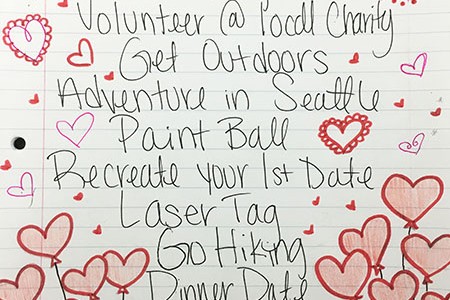 Volunteer @ Local Charity
Get Outdoors
Adventure in Seattle
Paint Ball
Recreate your 1st Date
Laser Tag
Go Hiking
Dinner Date